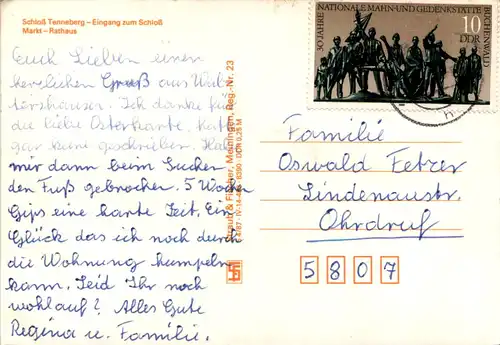 Schloß Tenneberg – Eingang zum Schloß
Markt – Rathaus
Euch Lieben einen
herzlichen Gruß aus Wal-
tershausen. Ich danke für
die liebe Osterkarte. Hatte
gar keine geschrieben. Hab
mir dann beim Suchen
den Fuß gebrochen. 5 Wochen
Gips eine harte Zeit. Ein
Glück das ich noch durch
die Wohnung humpeln
kann. Seid Ihr noch
wohlauf? Alles Gute
Regina u. Familie.
Straub & Fischer, Meiningen, Reg.-Nr. 23
30 JAHRE NATIONALE MAHN- UND GEDENKSTÄTTE
BUCHENWALD
10
DDR
Familie
Oswald Fetzer
Lindenaustr.
Ohrdruf
5807